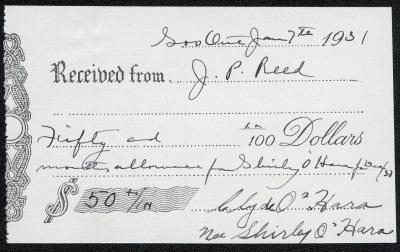 Soo Ont Jan 7th 1931
Received from J. P. Reed
Fifty and xx/100 Dollars
months allowance for Shirley O'Hara for Dec/30
$ 50 xx/xx
Clyde O'Hara
Nee Shirley O'Hara